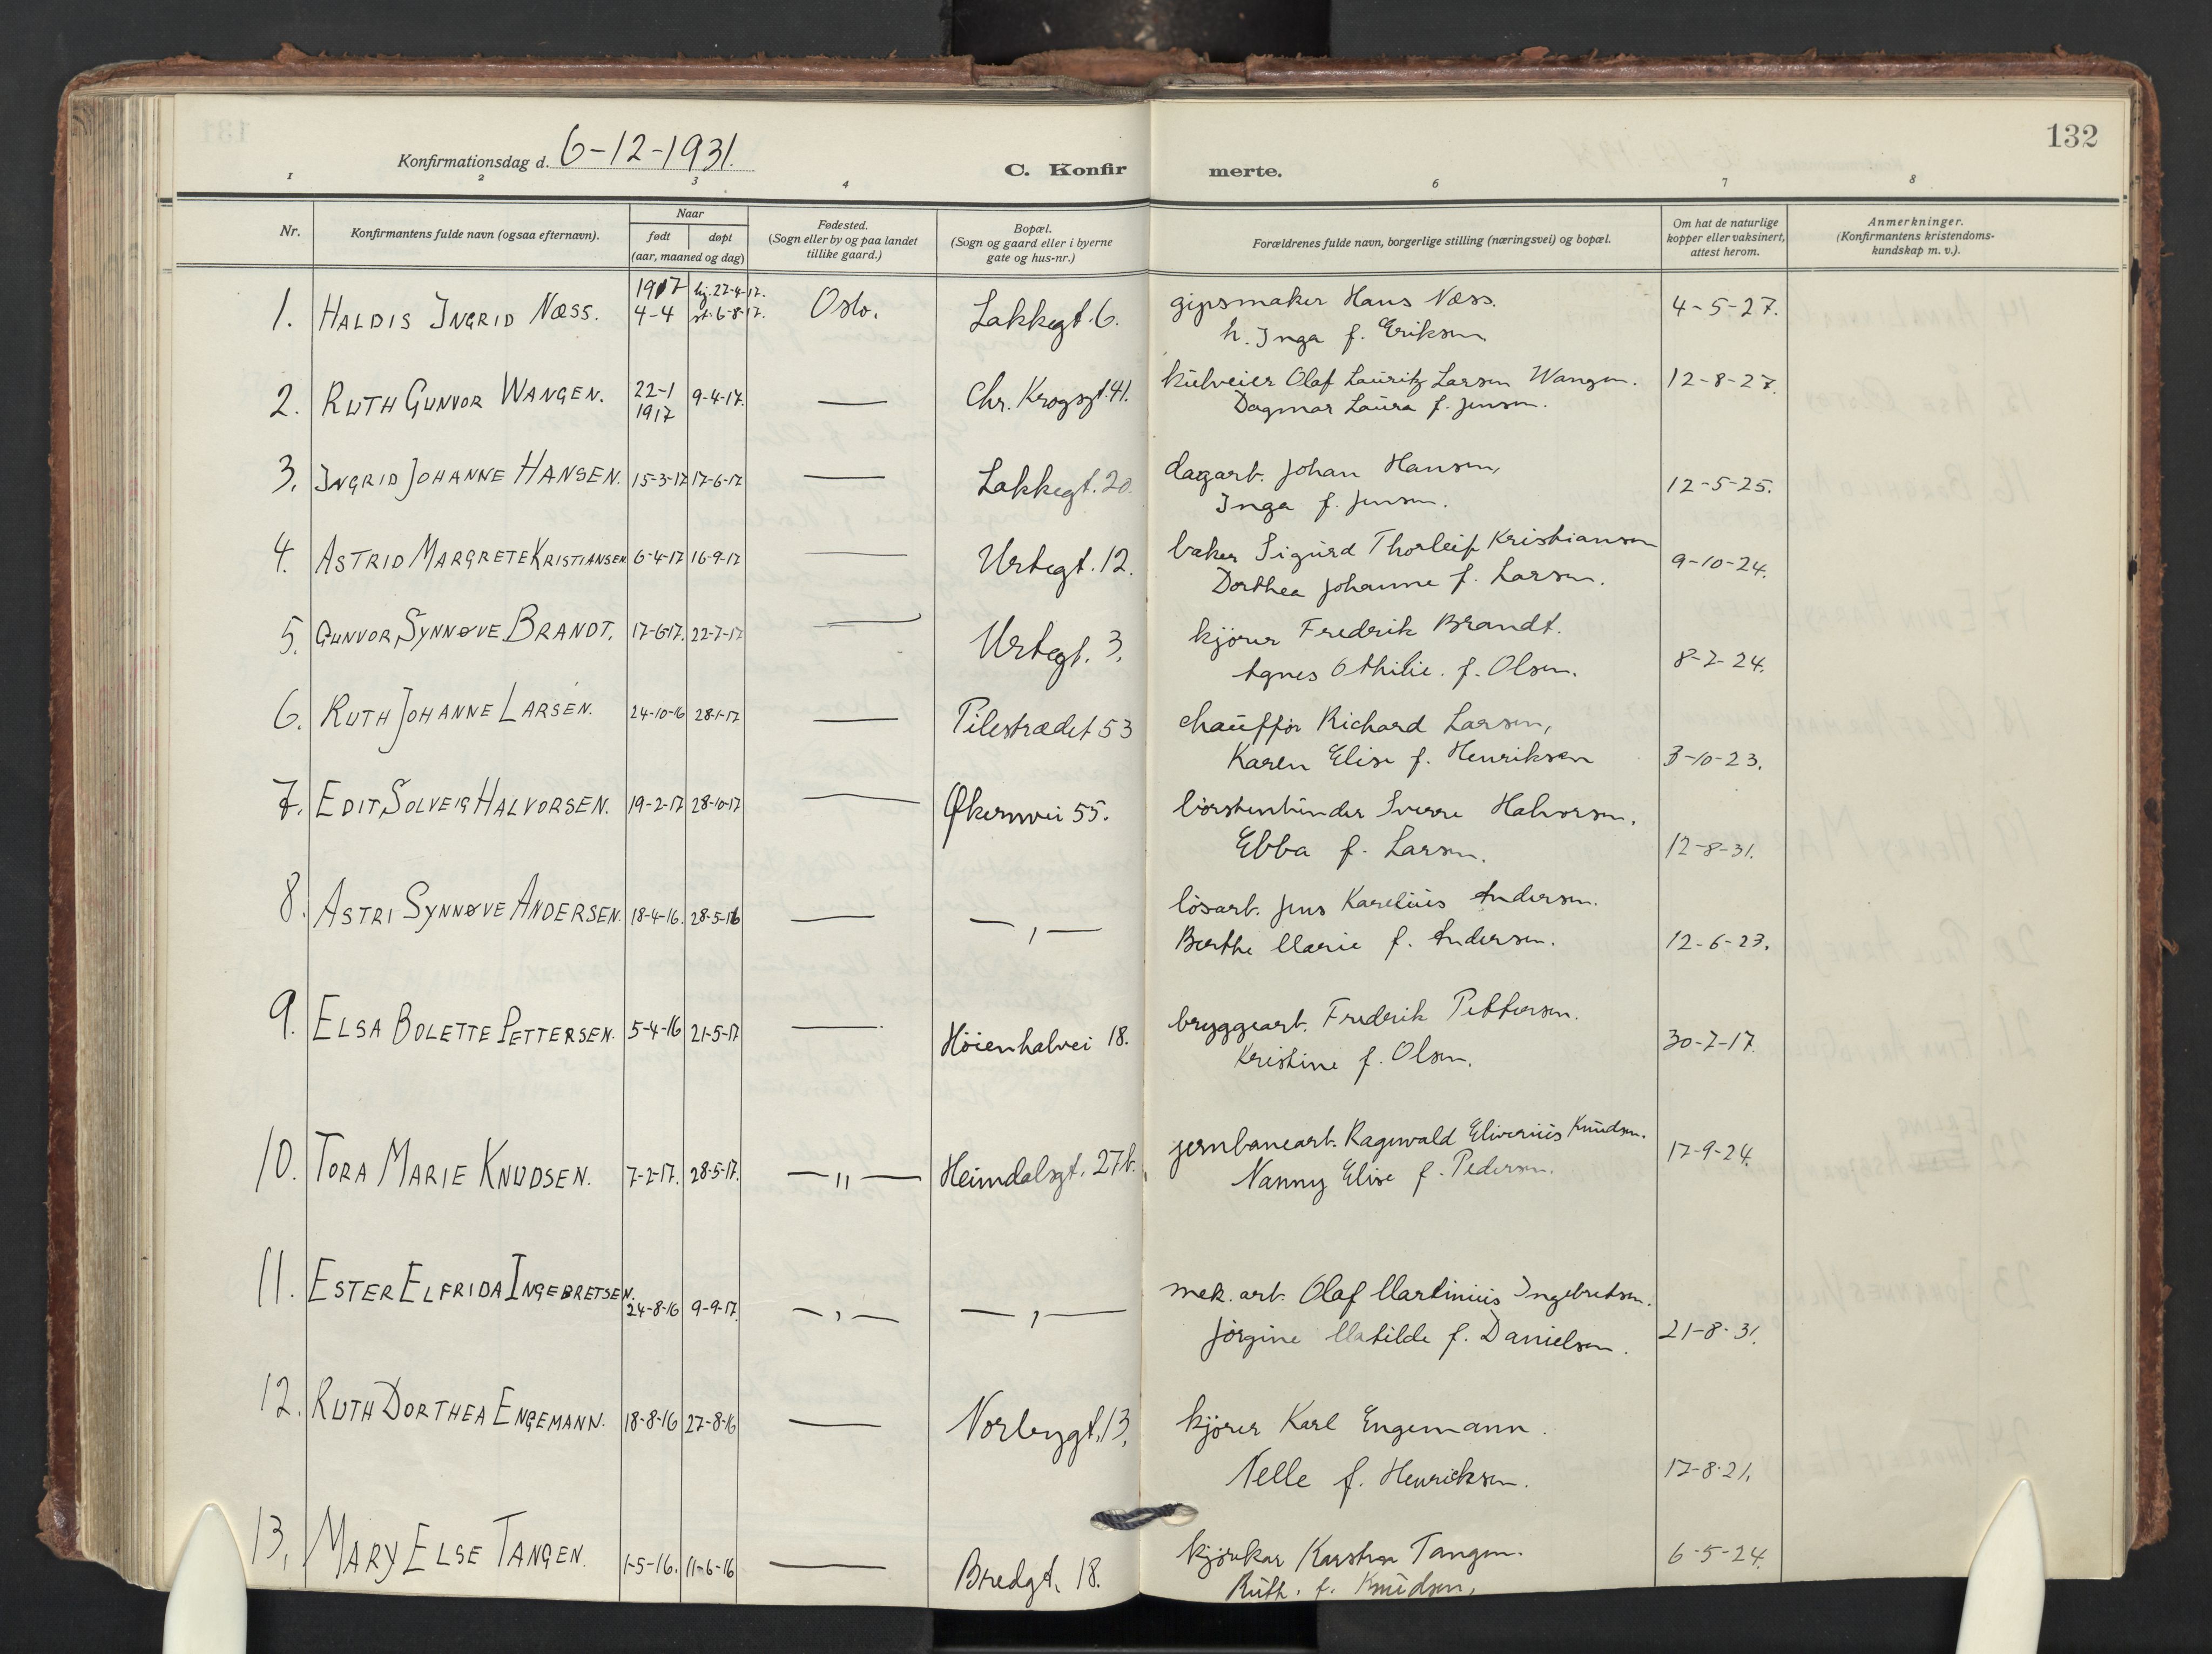 132
Konfirmationsdag d. 6-12-1931.
C. Konfirmerte.
1 2 3 4 6 7 8
Nr. Konfirmantens fulde navn (ogsaa efternavn). Naar født døpt (aar, maaned og dag) Fødested. (Sogn eller by og paa landet tillike gaard.) Bopæl. (Sogn og gaard eller i byerne gate og hus-nr.) Forældrenes fulde navn, borgerlige stilling (næringsvei) og bopæl. Om hat de naturlige kopper eller vaksinert, attest herom. Anmerkninger. (Konfirmantens kristendoms-kundskap m. v.).
1. HALDIS INGRID NÆSS. 1917 4-4 hj. 22-4-17. st. 6-8-17. Oslo. Lakkegt. 6. gipsmaker Hans Næss. 4-5-27.
h. Inga f. Eriksen
2. RUTH GUNVOR WANGEN. 22-1 1917 9-4-17. — Chr. Krogsgt. 41. kulveier Olaf Lauritz Larsen Wangen. 12-8-27.
Dagmar Laura f. Jensen.
3. INGRID JOHANNE HANSEN. 15-3-17 17-6-17 — Lakkegt. 20. dagarb. Johan Hansen,
Inga f. Jensen. 12-5-25.
4. ASTRID MARGRETE KRISTIANSEN 6-4-17 16-9-17 — Urtegt. 12. baker Sigurd Thorleif Kristiansen
Dorthea Johanne f. Larsen. 9-10-24.
5. GUNVOR SYNNØVE BRANDT. 17-6-17. 22-7-17 — Urtegt. 3. kjører Fredrik Brandt.
Agnes Othilie. f. Olsen. 8-2-24.
6. RUTH JOHANNE LARSEN. 24-10-16 28-1-17 — Pilestrædet 53 chauffør Richard Larsen,
Karen Elise f. Henriksen 3-10-23.
7. EDIT SOLVEIG HALVORSEN. 19-2-17 28-10-17 — Økernvei 55. børstenbinder Sverre Halvorsen.
Ebba f. Larsen. 12-8-31.
8. ASTRI SYNNØVE ANDERSEN. 18-4-16. 28-5-16 — —,— løsarb. Jens Karelius Andersen.
Berthe Marie f. Andersen. 12-6-23.
9. ELSA BOLETTE PETTERSEN. 5-4-16 21-5-17 — Höienhalvei 18. bryggearb. Fredrik Pettersen.
Kristine f. Olsen. 30-7-17.
10. TORA MARIE KNUDSEN. 7-2-17. 28-5-17. —"— Heimdalsgt. 27b. jernbanearb. Ragnvald Eliverius Knudsen. 17-9-24.
Nanny Elise f. Pedersen.
11. ESTER ELFRIDA INGEBRETSEN. 24-8-16 9-9-17. —,— —,— mek. arb. Olaf Martinius Ingebretsen.
Jørgine Matilde f. Danielsen. 21-8-31.
12. RUTH DORTHEA ENGEMANN. 18-8-16 27-8-16 — Norbygt. 13. kjører Karl Engemann.
Nelle f. Henriksen. 17-8-21.
13. MARY ELSE TANGEN. 1-5-16. 11-6-16 — Bredgt. 18. kjørekar Karsten Tangen. 6-5-24.
Ruth. f. Knudsen,